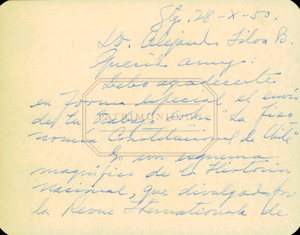 Stg. 28-X-50.
Dr. Alejandro Silva B.
Querido amigo:
Debo agradecerte
en forma especial el envío
de tu "La Fiso
nomía Constitucional de Chile
Es un esquema
magnífico de la Historia
Nacional, que divulgada por
la Revue Internationale de